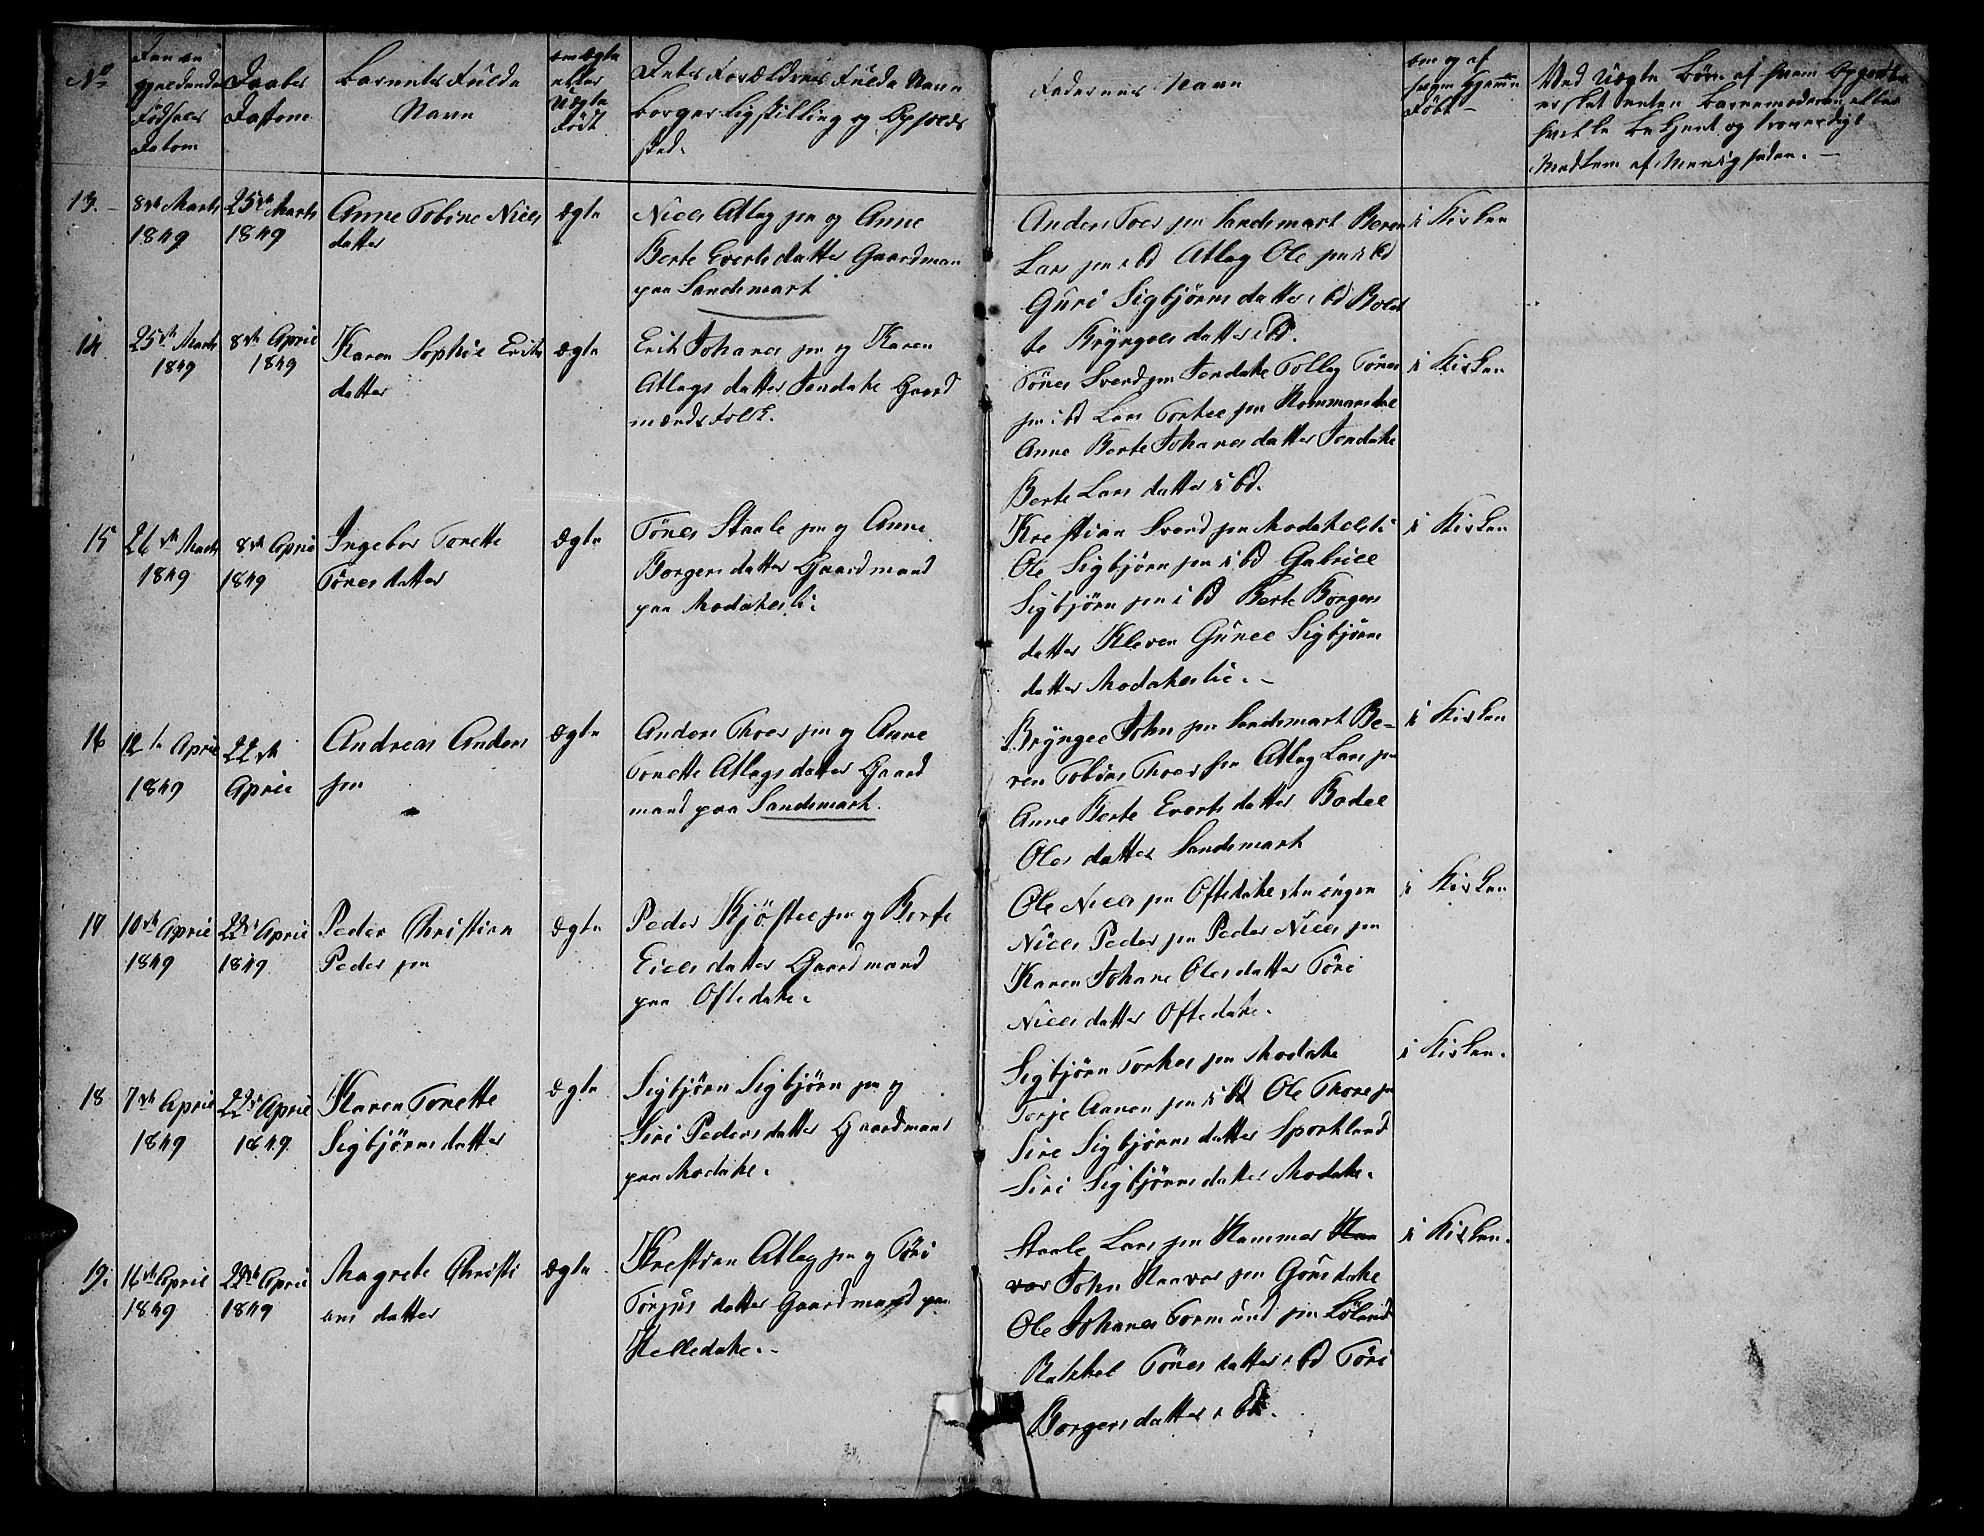 No
Fødsels
Datom
Daabs
Datom
Barnets Fulde
Navn
om ægte
eller
Uægte
Født
Forældrenes Fulde Navn
Borgerlig stilling og Opholds
sted.
Fadernes Navn
om og af
hvem hjemme
Døbt
Ved Uægte Børn af hvem
enten Barnemoderen eller
bekjent og troværdigt
Medlem af Menigheden. —
13. -
8de Marts
1849
25de Marts
1849
Anne Tobine Niels
datter
ægte
Niels Atlag sen og Anne
Berte Evertsdatter Gaardman
paa Sandsmark
Anders Toer sen Sandsmark Beren
Lars sen i bd Atlag Ole sen i bd
Guri Sigbjørns datter i bd Bolet
te Bryngels datter i bd.
i Kirken
14
25de Marts
1849
8de April
1849
Karen Sophie Eriks
datter
ægte
Erik Johanes sen og Karen
Atlags datter Gaard
mands Folk.
Tønes Sverd sen Tollag Tønes
sen i bd Lars Torkel sen
Anne Berte Johanes datter
Berte Lars datter i bd.
i Kirken
15
26de Marts
1849
8de April
1849
Ingebor Tonette
Tønes datter
Ægte
Tønes Staale sen og Anne
Borgers datter Gaardmand
paa Modalsli.
Krestian Sverd sen Modalsli
Ole Sigbjørn sen i bd Gabriel
Sigbjørn sen i bd Berte Borgers
datter Kleven Gunel Sigbjørns
datter Modalslie. -
i Kirken
16
12te April
1849
22de
April
Andreas Anders
sen
ægte
Anders Thoer sen og Anne
Tonette Atlags datter Gaard
mand paa Sandsmark.
Bryngel John sen Sandsmark Be-
ren Tobias Thoer sen Atlag Lars sen
Anne Berte Everts datter Bodel
Oles datter Sandsmark
i Kirken
17
10de April
1849
22de April
1849
Peder Christian
Peder sen
Ægte
Peder Kjøstel sen og Berte
Eilers datter Gaardmand
paa Oftedahl.
Ole Niels sen Oftedahl
Niels Peder sen Peder Niels sen
Karen Johane Oles datter Töri
Niels datter Oftedahl.
i Kirken
18
7de April
1849
22de April
1849
Karen Tonette
Sigbjørns datter
Ægte
Sigbjørn Sigbjørn sen og
Siri Peders datter Gaardmand
paa Modahl.
Sigbjørn Torkel sen Modahl
Torje Aanen sen i bd Ole Thore sen
Sire Sigbjørns datter Sporkland
Siri Sigbjørns datter Modahl.
i Kirken.
19.
16de April
1849
22de April
1849
Magrete Christi
ans datter
Ægte
Krestian Atlag sen og Töri
Torjus datter Gaardmand paa
Helledahl. -
Staale Lars sen Hammer Haa
var John Haavar sen
Ole Johanes Tormund sen Løland
Rakkel Tønes datter i bd Töri
Borgers datter i bd.
i Kirken.